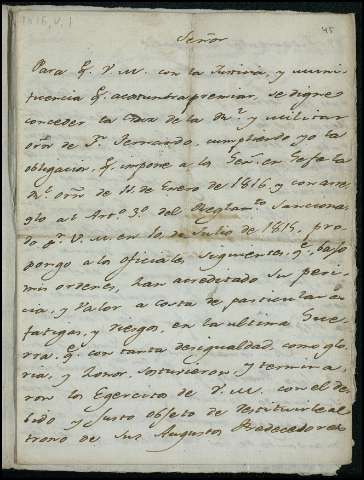 1816, V, 1
45
Señor
Para q.e V. M. con la Justicia, y muni-
ficencia q.e acostumbra premiar, se digne
conceder la Cruz de la R.l y militar
orñ de Sn Fernando, cumpliendo yo la
obligacion, q.e impone a los Gen.s en Gefe la
R.l orñ de 11. de Enero de 1816. y con arre-
glo al Arto 3º del Reglamto Sanciona-
do pr V. M. en 10. de Julio de 1815, pro-
pongo a los oficiales siguientes, q.e bajo
mis ordenes, han acreditado su peri-
cia, y Valor a costa de particulares
fatigas, y riesgos, en la ultima Gue-
rra q.e con tanta desigualdad, como glo-
ria, y honor, sostuvieron, y termina-
ron los Egercitos de V. M. con el de-
bido y justo objeto de restituirle al
trono de sus Augustos Predecesores